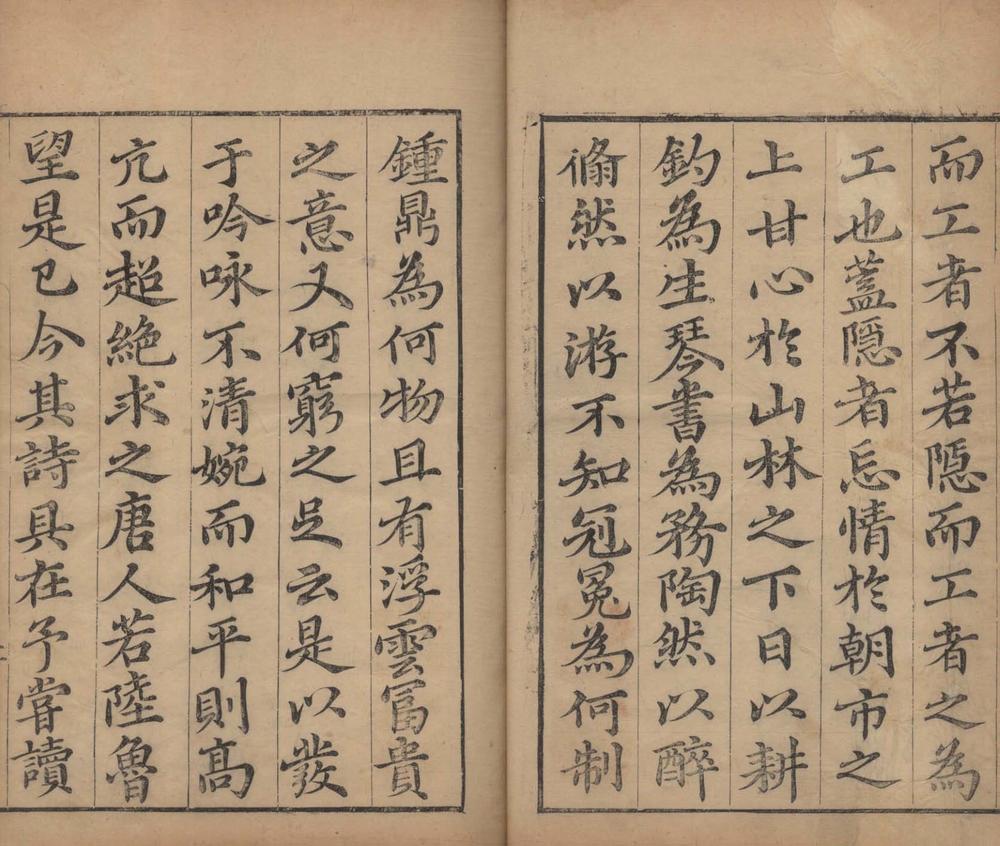 而工者不若隱而工者之為
工也蓋隱者忘情於朝市之
上甘心於山林之下日以耕
釣為生琴書為務陶然以醉
翛然以游不知冠冕為何制
鍾鼎為何物且有浮雲富貴
之意又何窮之足云是以發
于吟咏不清婉而和平則高
亢而超絕求之唐人若陸魯
望是已今其詩具在予嘗讀